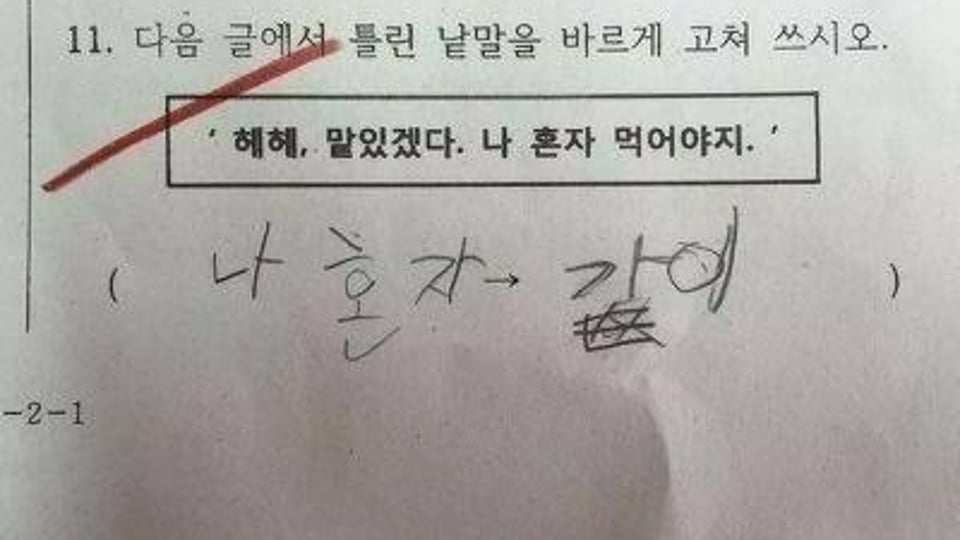 11. 다음 글에서 틀린 낱말을 바르게 고쳐 쓰시오.
' 헤헤, 맡있겠다. 나 혼자 먹어야지. '
( 나 혼자 → 같이 )
-2-1